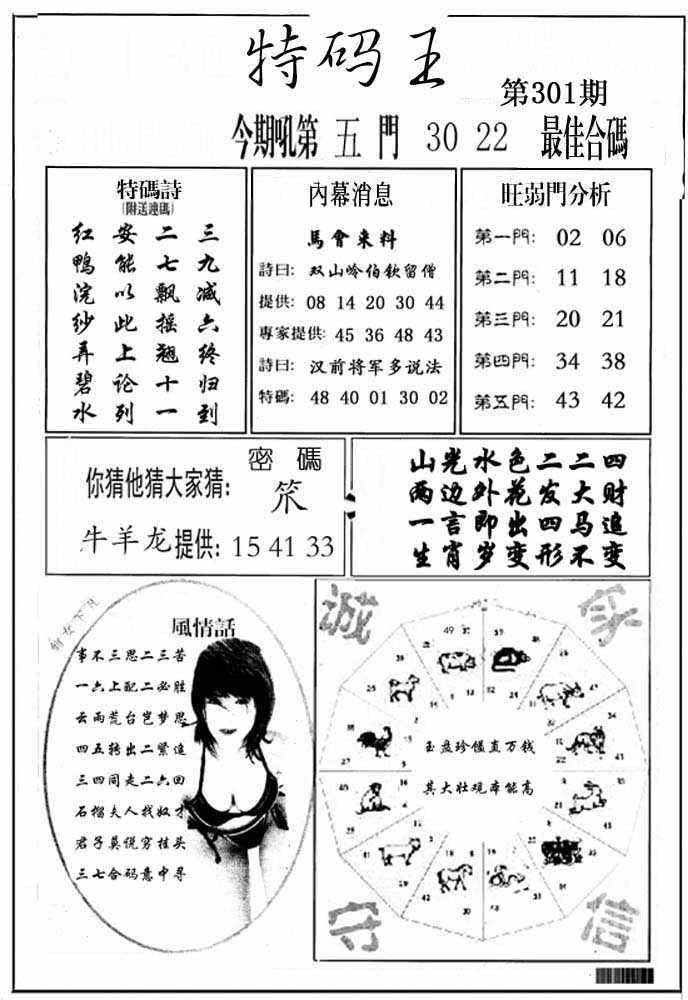 特码王
第301期
今期吼第 五 門 30 22 最佳合碼
特碼詩
(附送連碼)
红 安 二 三
鴨 能 七 九
浣 以 飘 减
纱 此 摇 六
弄 上 翘 终
碧 论 十 归
水 列 一 到
內幕消息
馬會来料
詩曰: 双山岭伯钦留僧
提供: 08 14 20 30 44
專家提供: 45 36 48 43
詩曰: 汉前将军多说法
特碼: 48 40 01 30 02
旺弱門分析
第一門: 02 06
第二門: 11 18
第三門: 20 21
第四門: 34 38
第五門: 43 42
密 碼
你猜他猜大家猜:
牛羊龙提供: 15 41 33
山光水色二二四
两边外花发大财
一言即出四马追
生肖岁变形不变
仙女下凡
風情話
事不三思二三苦
一六上配二必胜
云雨荒台岂梦思
四五转出二紧追
三四同走二六回
石榴夫人找奴才
君子莫说穷挂头
三七合码意中寻
诚 家
玉盘珍馐直万钱
其大壮观本能高
守 信